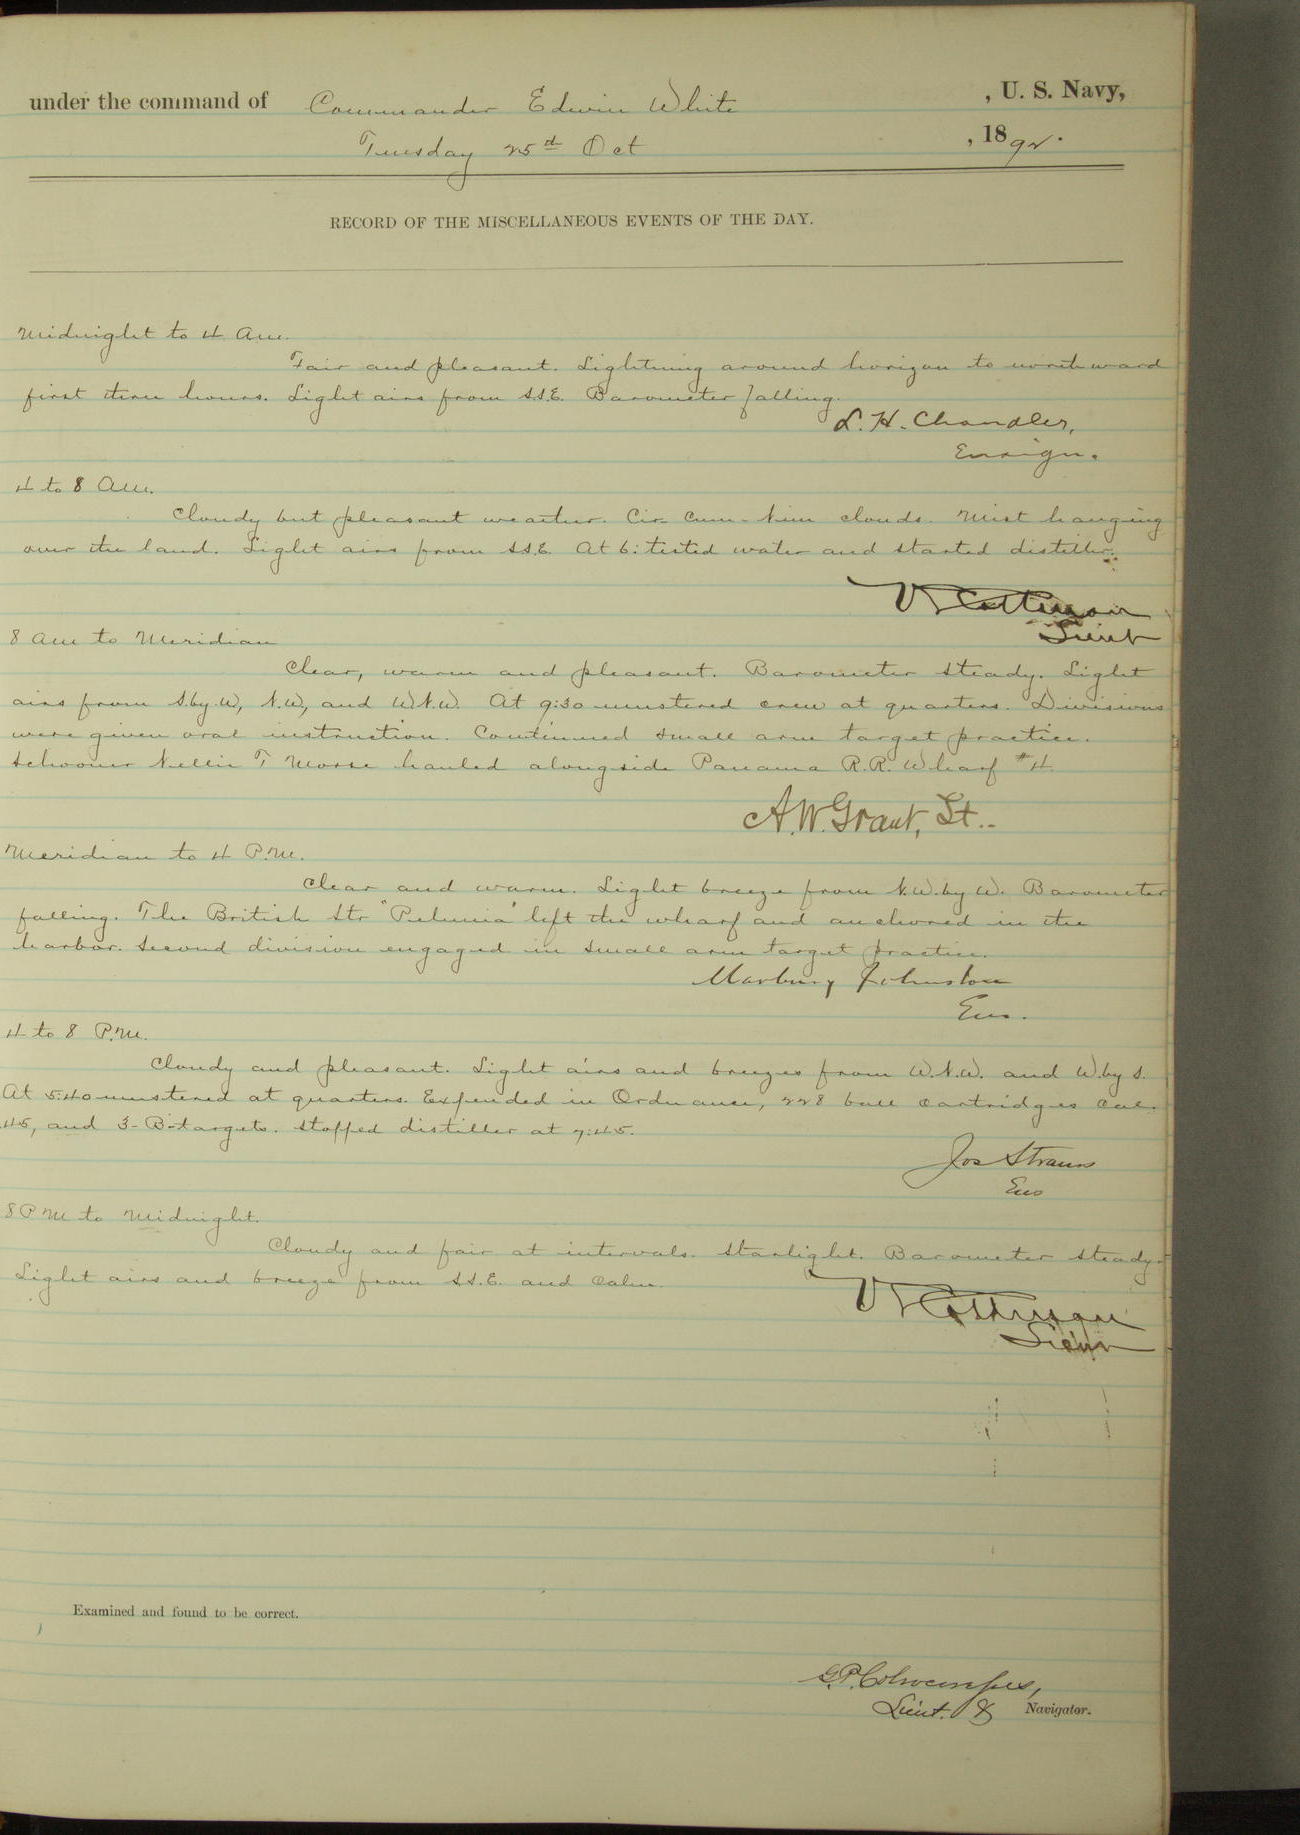 under the command of Commander Edwin White , U. S. Navy,
Tuesday 25th Oct , 1892.
RECORD OF THE MISCELLANEOUS EVENTS OF THE DAY.
Midnight to 4 Am.
Fair and pleasant. Lightning around horizon to northward
first three hours. Light airs from S.S.E. Barometer falling.
L. H. Chandler,
Ensign.
4 to 8 Am.
Cloudy but pleasant weather. Cir- Cum- Nim clouds. Mist hanging
over the land. Light airs from S.S.E. At 6: tested water and started distiller.
V Cottman
Lieut
8 am to Meridian
Clear, warm and pleasant. Barometer steady. Light
airs from S.by.W, N.W, and W.N.W. At 9:30 mustered crew at quarters. Divisions
were given oral instruction. Continued small arm target practice.
Schooner Nellie T Morse hauled alongside Panama R.R. Wharf #4
A. W. Grant, Lt..
Meridian to 4 P.M.
Clear and warm. Light breeze from N.W. by W. Barometer
falling. The British Str left the wharf and anchored in the
harbor. Second division engaged in small arm target practice.
Marbury Johnston
Ens.
4 to 8 P.M.
Cloudy and pleasant. Light airs and breezes from W.N.W. and W. by S.
At 5:40 mustered at quarters. Expended in Ordnance, 228 ball cartridges cal.
.45, and 3-B-targets. Stopped distiller at 7:45.
Jos Strauss
Ens
8 P M to Midnight.
Cloudy and fair at intervals. Starlight. Barometer steady.
Light airs and breeze from S.S.E. and calm.
V Cottman
Lieut
Examined and found to be correct.
G. P. Colvocoresses,
Lieut. & Navigator.